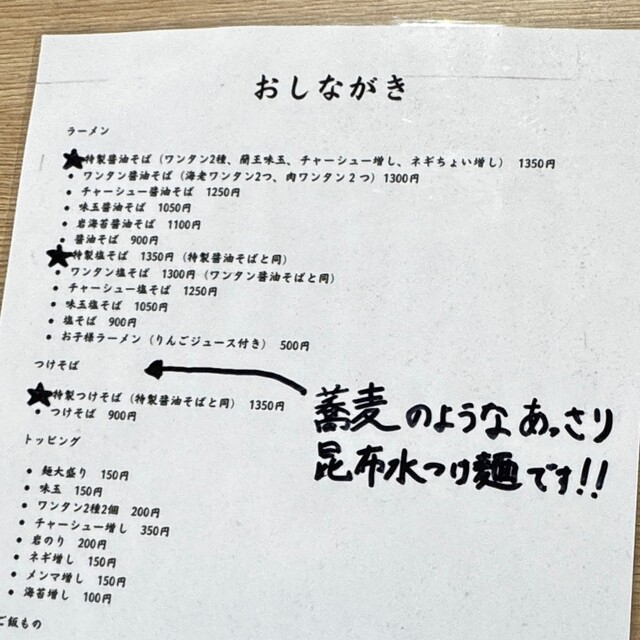 おしながき
ラーメン
★特製醤油そば（ワンタン2種、蘭王味玉、チャーシュー増し、ネギちょい増し） 1350円
• ワンタン醤油そば（海老ワンタン2つ、肉ワンタン2つ）1300円
• チャーシュー醤油そば 1250円
• 味玉醤油そば 1050円
• 岩海苔醤油そば 1100円
• 醤油そば 900円
★特製塩そば 1350円（特製醤油そばと同）
• ワンタン塩そば 1300円（ワンタン醤油そばと同）
• チャーシュー塩そば 1250円
• 味玉塩そば 1050円
• 塩そば 900円
• お子様ラーメン（りんごジュース付き） 500円
つけそば
★特製つけそば（特製醤油そばと同） 1350円
• つけそば 900円
蕎麦のようなあっさり
昆布水つけ麺です!!
トッピング
• 麺大盛り 150円
• 味玉 150円
• ワンタン2種2個 200円
• チャーシュー増し 350円
• 岩のり 200円
• ネギ増し 150円
• メンマ増し 150円
• 海苔増し 100円
ご飯もの